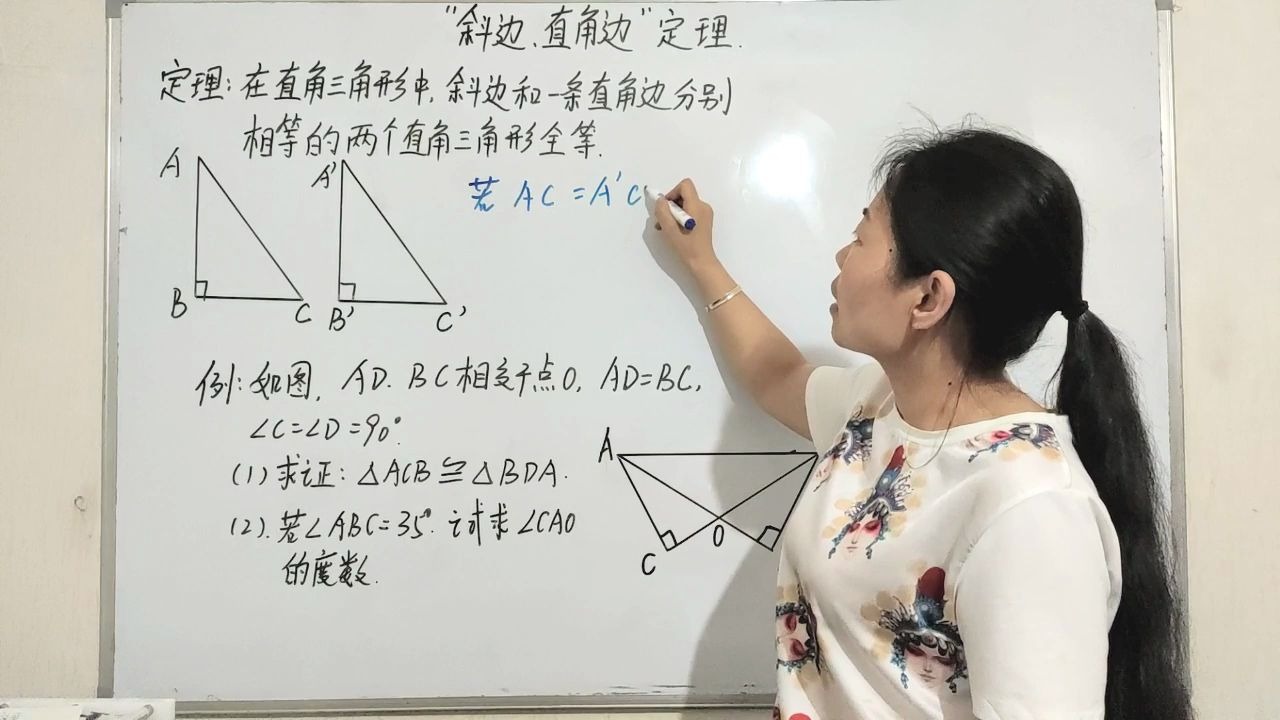 "斜边、直角边"定理.
定理:在直角三角形中,斜边和一条直角边分别
相等的两个直角三角形全等.
A
A'
若 AC = A'C
B
C
B'
C'
例:如图, AD、BC相交于点O, AD=BC,
∠C=∠D=90°.
A
(1)求证:△ACB≌△BDA.
(2).若∠ABC=35°.试求∠CAO
O
的度数.
C